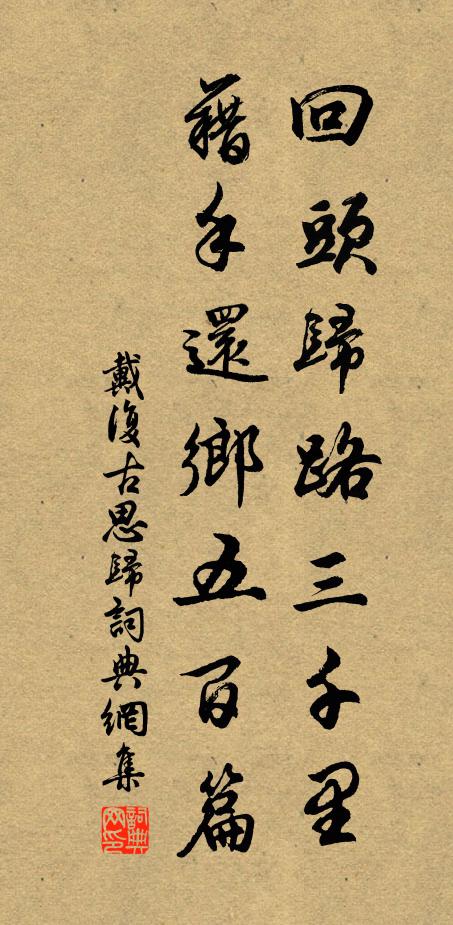 回頭歸路三千里
藉手還鄉五百篇
戴復古思歸詞典網集
詞典网印